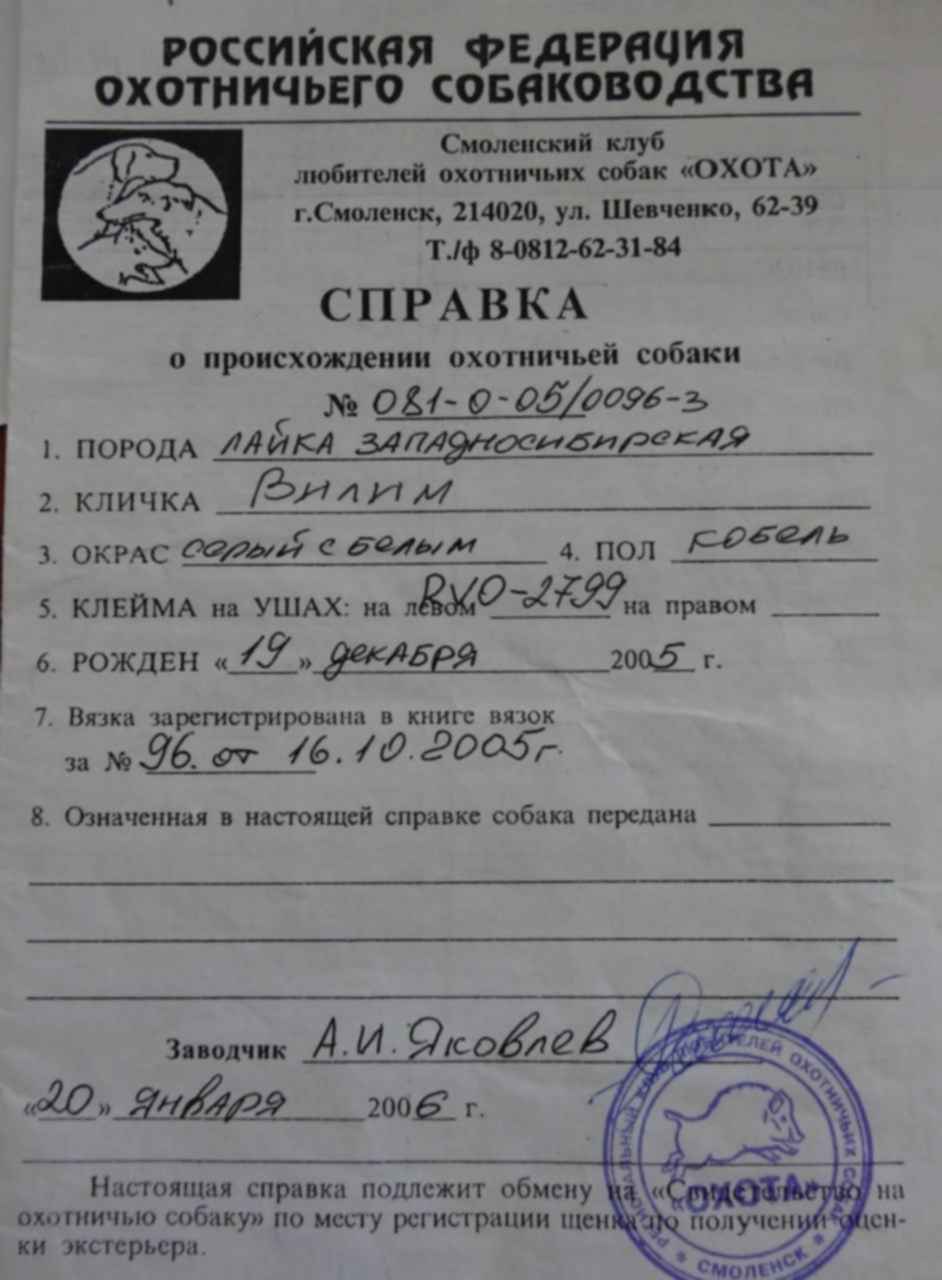 РОССИЙСКАЯ ФЕДЕРАЦИЯ
ОХОТНИЧЬЕГО СОБАКОВОДСТВА
Смоленский клуб
любителей охотничьих собак «ОХОТА»
г.Смоленск, 214020, ул. Шевченко, 62-39
Т./ф 8-0812-62-31-84
СПРАВКА
о происхождении охотничьей собаки
№ 081-0-05/0096-3
1. ПОРОДА ЛАЙКА ЗАПАДНОСИБИРСКАЯ
2. КЛИЧКА ВИЛИМ
3. ОКРАС серый с белым 4. ПОЛ КОБЕЛЬ
5. КЛЕЙМА на УШАХ: на левом RVO-2799 на правом
6. РОЖДЕН «19» декабря 2005 г.
7. Вязка зарегистрирована в книге вязок
за № 96. от 16.10.2005г.
8. Означенная в настоящей справке собака передана
Заводчик А.И.Яковлев
«20» января 2006 г.
Настоящая справка подлежит обмену на «Свидетельство на
охотничью собаку» по месту регистрации щенка по получении оцен-
ки экстерьера.
РЕГИОНАЛЬНЫЙ КЛУБ ЛЮБИТЕЛЕЙ ОХОТНИЧЬИХ СОБАК
«ОХОТА»
* СМОЛЕНСК *